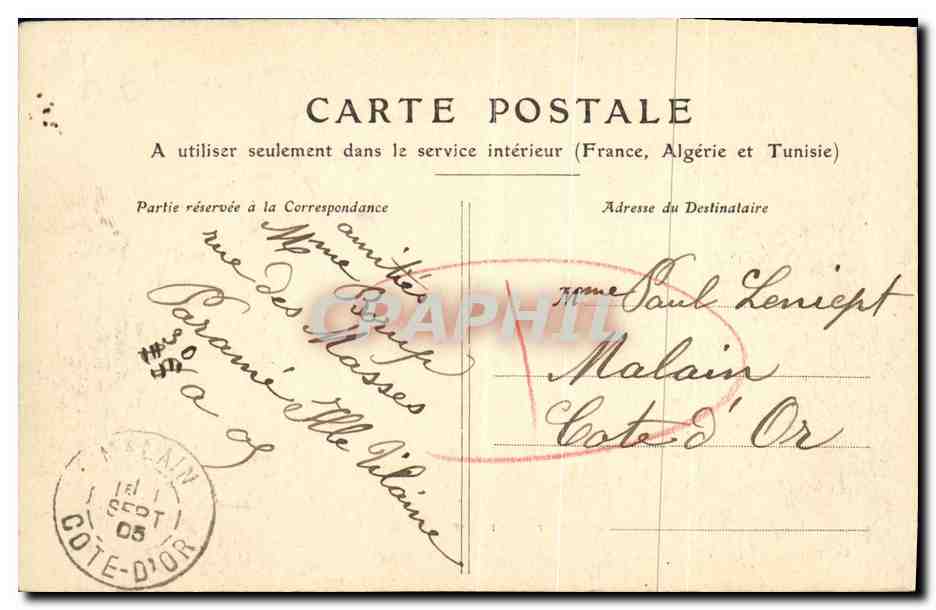 CARTE POSTALE
A utiliser seulement dans le service intérieur (France, Algérie et Tunisie)
Partie réservée à la Correspondance
amitiés
Mme
rue des Masses
Paramé Ille Vilaine
Adresse du Destinataire
Mme Paul Leniept
Malain
Cote d'Or
MALAIN
SEPT
05
COTE-D'OR
CPAPHIL